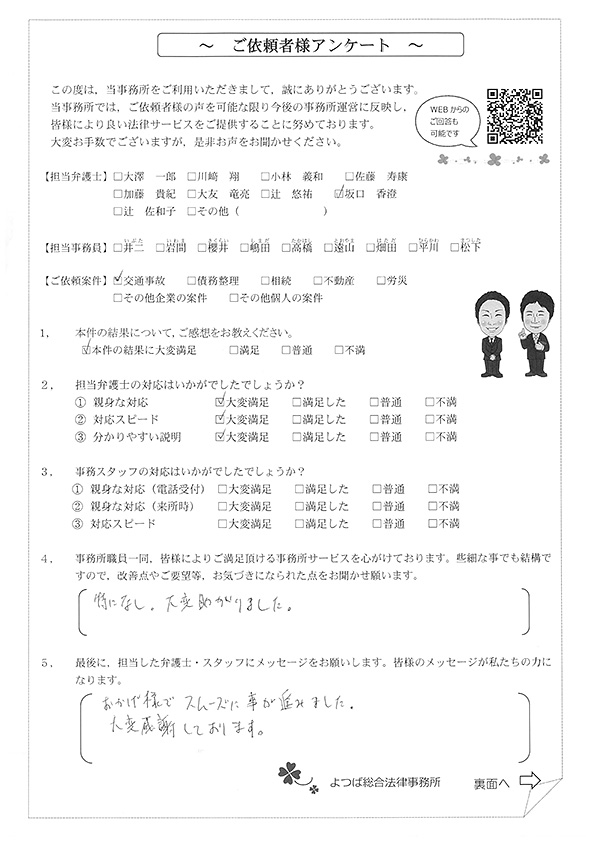 ～ ご依頼者様アンケート ～
この度は，当事務所をご利用いただきまして，誠にありがとうございます。
当事務所では，ご依頼者様の声を可能な限り今後の事務所運営に反映し，
皆様により良い法律サービスをご提供することに努めております。
大変お手数でございますが，是非お声をお聞かせください。
WEBからの
ご回答も
可能です
【担当弁護士】□大澤 一郎 □川﨑 翔 □小林 義和 □佐藤 寿康
□加藤 貴紀 □大友 竜亮 □辻 悠祐 ☑坂口 香澄
□辻 佐和子 □その他（ ）
【担当事務員】□井二 □岩間 □櫻井 □嶋田 □高橋 □遠山 □畑田 □平川 □松下
【ご依頼案件】☑交通事故 □債務整理 □相続 □不動産 □労災
□その他企業の案件 □その他個人の案件
1． 本件の結果について，ご感想をお教えください。
☑本件の結果に大変満足 □満足 □普通 □不満
2． 担当弁護士の対応はいかがでしたでしょうか？
① 親身な対応 ☑大変満足 □満足した □普通 □不満
② 対応スピード ☑大変満足 □満足した □普通 □不満
③ 分かりやすい説明 ☑大変満足 □満足した □普通 □不満
3． 事務スタッフの対応はいかがでしたでしょうか？
① 親身な対応（電話受付） □大変満足 □満足した □普通 □不満
② 親身な対応（来所時） □大変満足 □満足した □普通 □不満
③ 対応スピード □大変満足 □満足した □普通 □不満
4． 事務所職員一同，皆様によりご満足頂ける事務所サービスを心がけております。些細な事でも結構で
すので，改善点やご要望等，お気づきになられた点をお聞かせ願います。
特になし。大変助かりました。
5． 最後に，担当した弁護士・スタッフにメッセージをお願いします。皆様のメッセージが私たちの力に
なります。
おかげ様でスムーズに事が進みました。
大変感謝しております。
よつば総合法律事務所
裏面へ